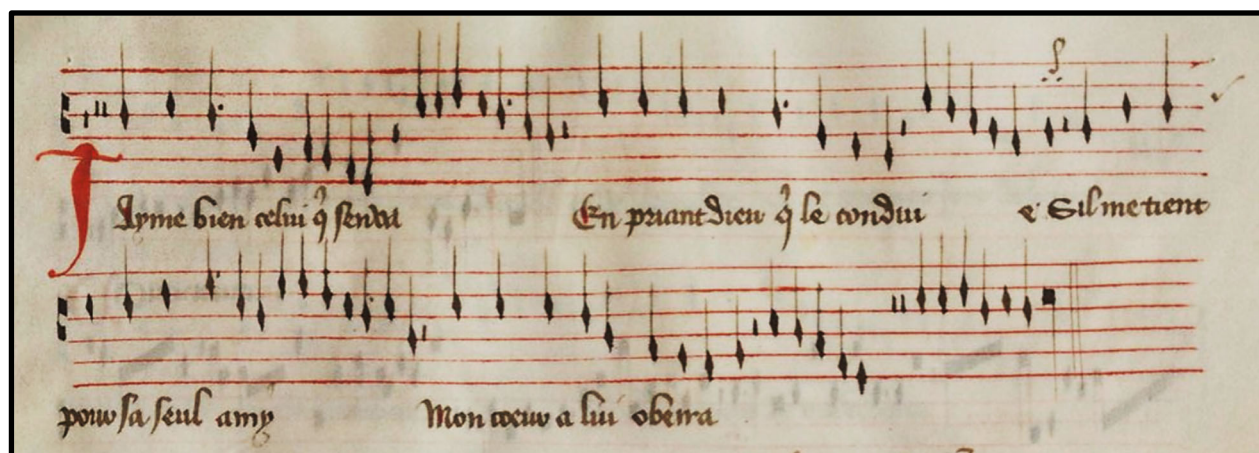 Jayme bien celui q̉ senva En priant dieu q̉ le condui e Sil me tient
pour sa seul amy Mon coeur a lui obeira